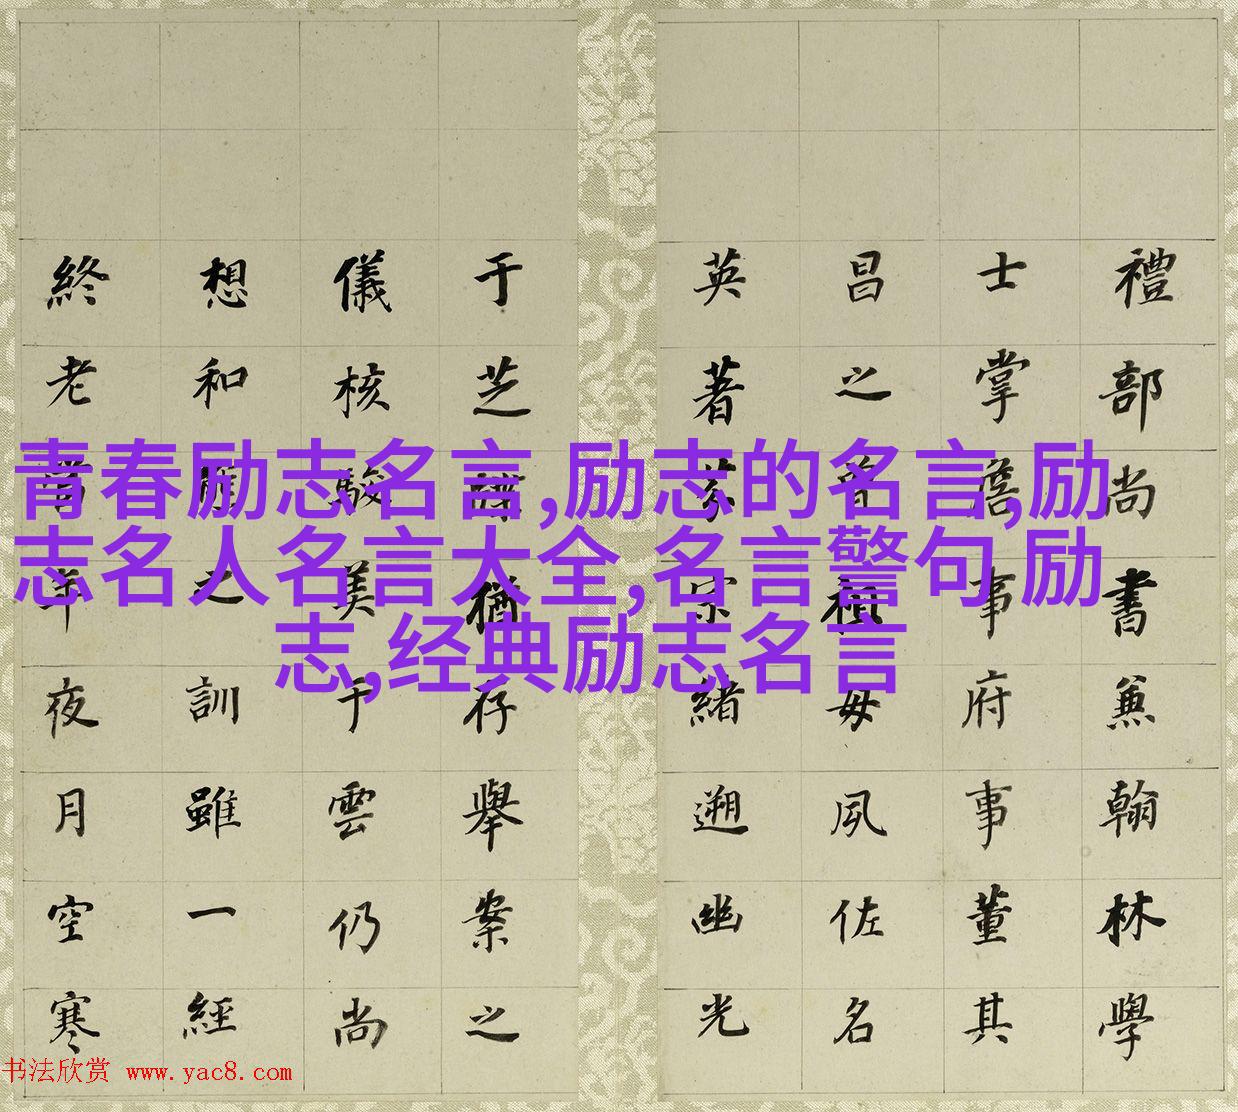 禮部尚書兼翰林學
士掌詹事府事董其
昌之曾祖母夙佐名
英著芬宗緒遡幽光
于芝猶存舉案之
儀核駿美于雲仍尚
想和之訓雖一經
終老當年夜月空寒
青春励志名言,励志的名言,励
志名人名言大全,名言警句,励
志,经典励志名言
书法欣赏 www.yac8.com